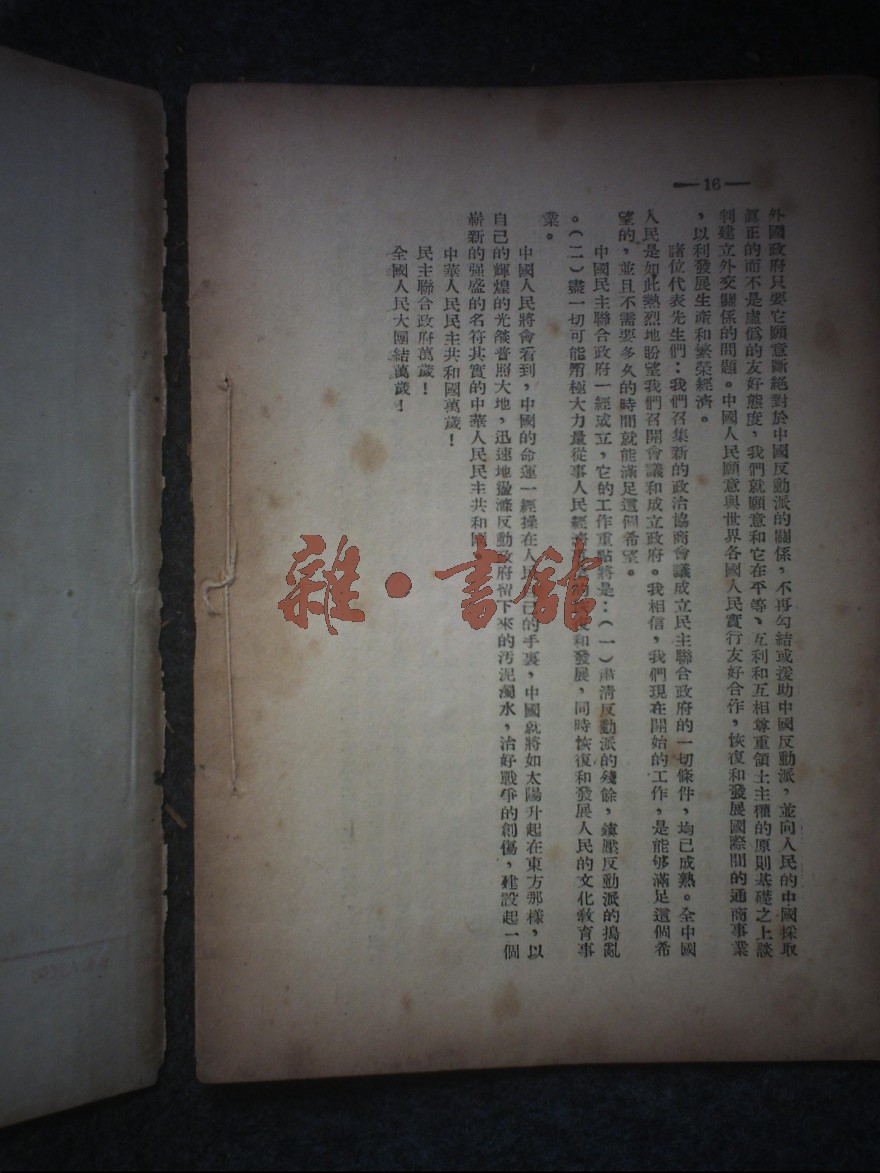 —16—
外國政府只要它願意斷絕對於中國反動派的關係，不再勾結或援助中國反動派，並向人民的中國採取
眞正的而不是虛僞的友好態度，我們就願意和它在平等、互利和互相尊重領土主權的原則基礎之上談
判建立外交關係的問題。中國人民願意與世界各國人民實行友好合作，恢復和發展國際間的通商事業
，以利發展生產和繁榮經濟。
諸位代表先生們：我們召集新的政治協商會議成立民主聯合政府的一切條件，均已成熟。全中國
人民是如此熱烈地盼望我們召開會議和成立政府。我相信，我們現在開始的工作，是能够滿足這個希
望的，並且不需要多久的時間就能滿足這個希望。
中國民主聯合政府一經成立，它的工作重點將是：（一）肅清反動派的殘餘，鎮壓反動派的搗亂
。（二）盡一切可能用極大力量從事人民經濟和發展，同時恢復和發展人民的文化敎育事
業。
中國人民將會看到，中國的命運一經操在人民自己的手裏，中國就將如太陽升起在東方那樣，以
自己的輝煌的光燄普照大地，迅速地盪滌反動政府留下來的汚泥濁水，治好戰爭的創傷，建設起一個
嶄新的强盛的名符其實的中華人民民主共和國。
中華人民民主共和國萬歲！
民主聯合政府萬歲！
全國人民大團結萬歲！
雜·書館